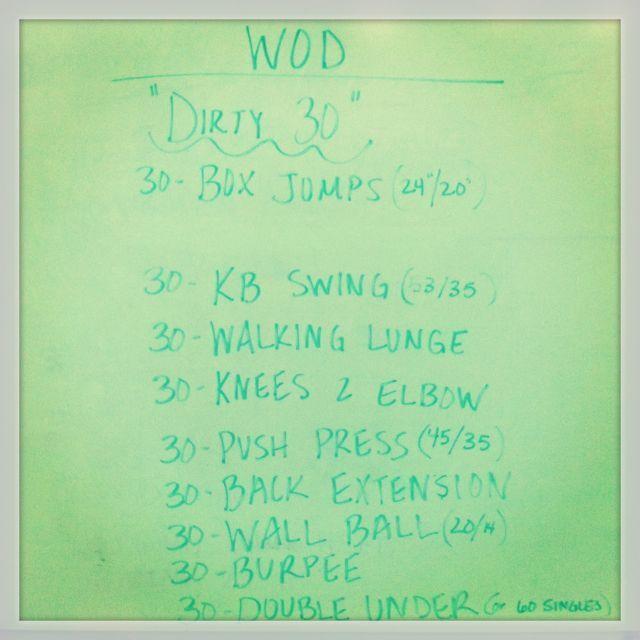 WOD
"DIRTY 30"
30- BOX JUMPS (24"/20")
30- KB SWING (53/35)
30- WALKING LUNGE
30- KNEES 2 ELBOW
30- PUSH PRESS (45/35)
30- BACK EXTENSION
30- WALL BALL (20/14)
30- BURPEE
30- DOUBLE UNDER (or 60 SINGLES)